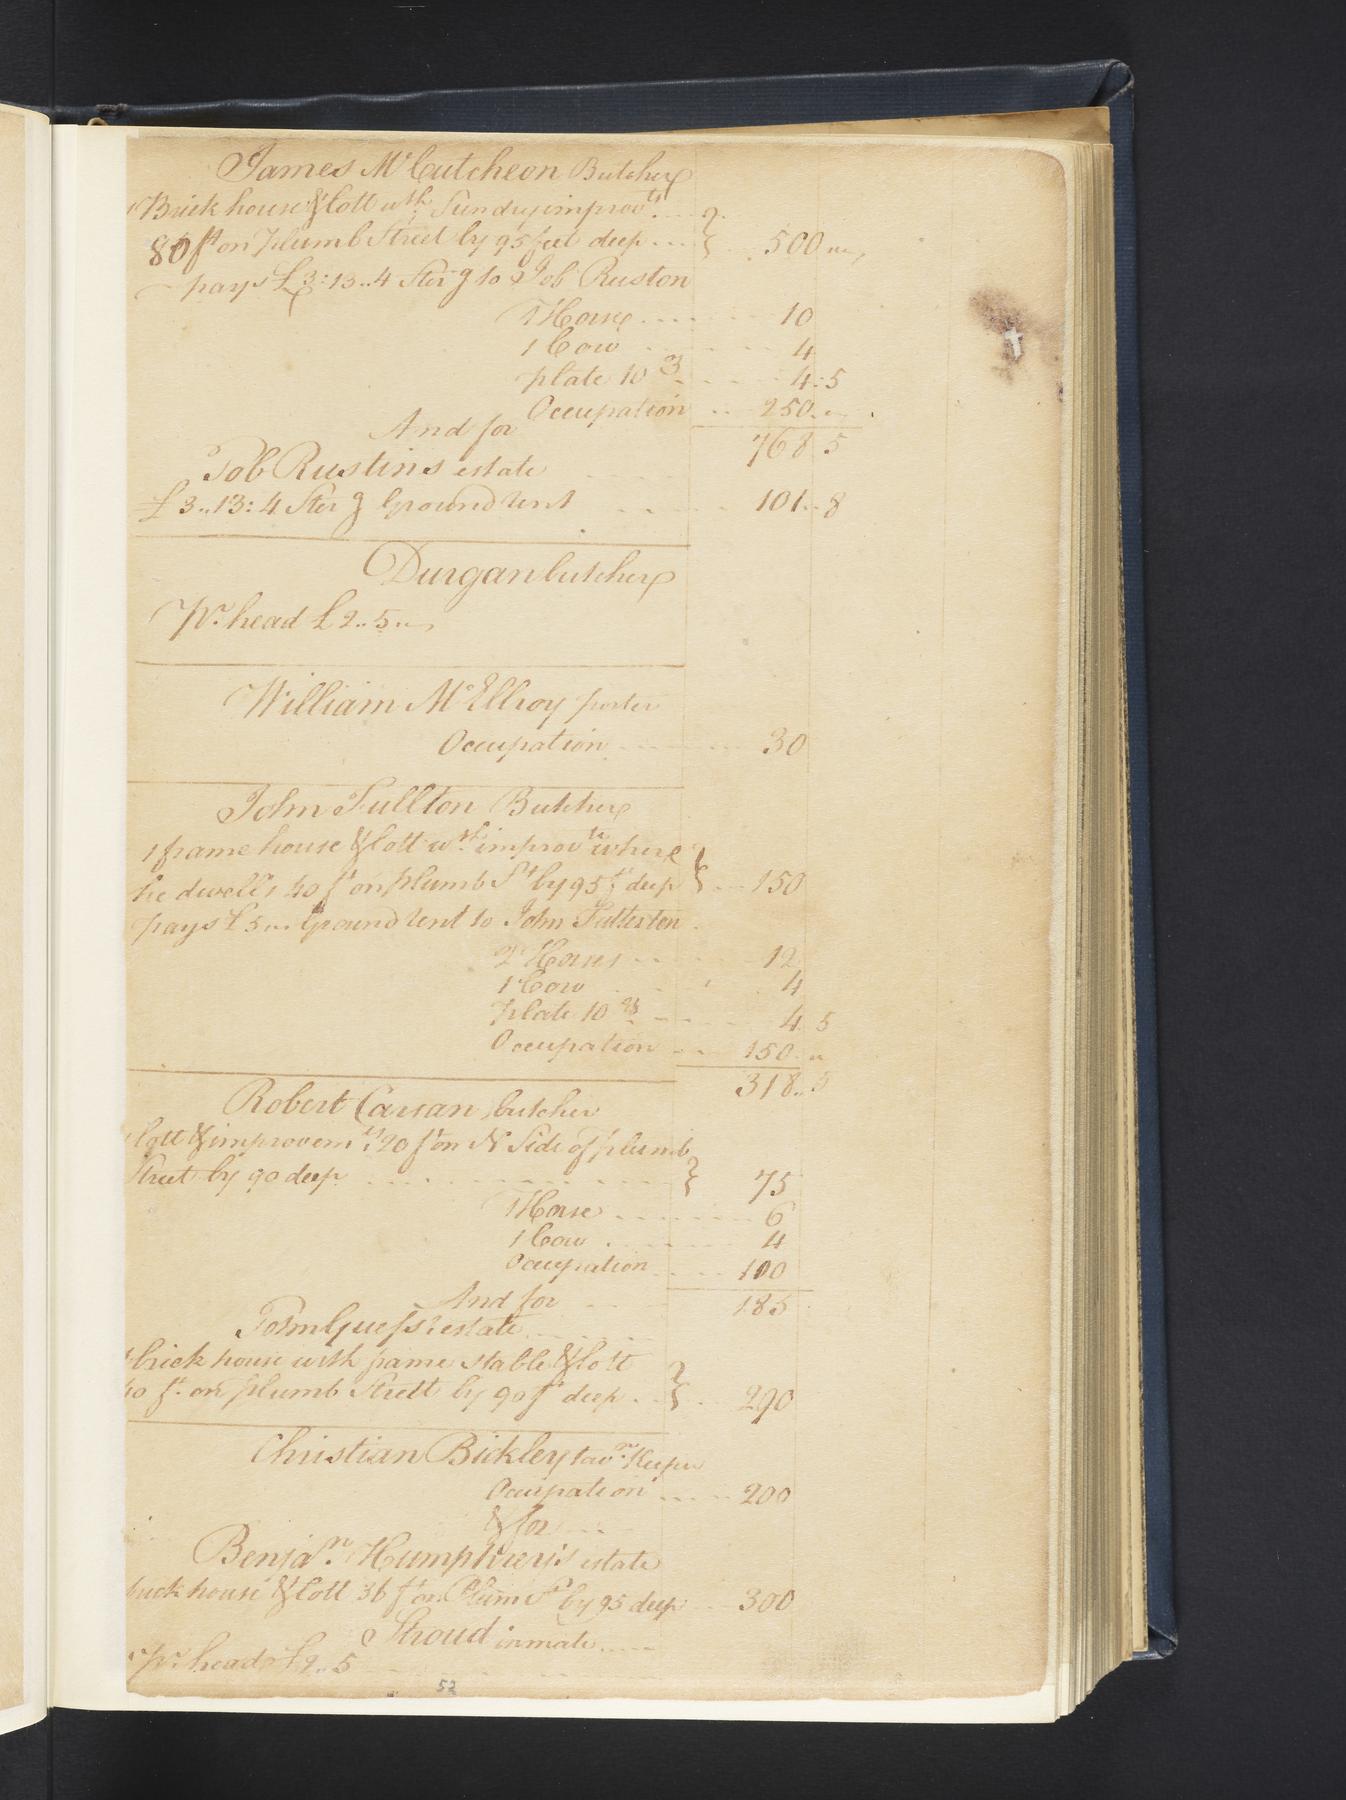 James McCutcheon Butcher
1 Brick house & lott wth Sundry improvts
80 ft on Plumb Street by 95 feet deep 500
pays £3:13..4 Sterg to Job Ruston
1 Horse 10
1 Cow 4
plate 10 4:5
Occupation 250
And for 768 5
Job Rustins estate
£3..13:4 Sterg Ground rent 101..8
Durgan butcher
Pr. head £2..5
William McEllroy porter
Occupation 30
John Fullton Butcher
1 frame house & lott wth improvts where
he dwells 40 ft on plumb St by 95 ft deep 150
pays £5 Ground rent to John Fullerton
2 Horses 12
1 Cow 4
Plate 10 4 5
Occupation 150
318..5
Robert Carsan butcher
lott & improvemts 20 ft on N Side of plumb
Street by 90 deep 75
1 Horse 6
1 Cow 4
Occupation 100
And for 185
John Guess's estate
1 brick house with frame stable & lott
40 ft. on plumb Strett by 90 ft deep 290
Christian Bickley tavn Keeper
Occupation 200
& for
Benjan. Humphrey's estate
brick house & lott 36 ft on Plum St by 95 deep 300
Stroud inmate
Pr. head £2..5
52